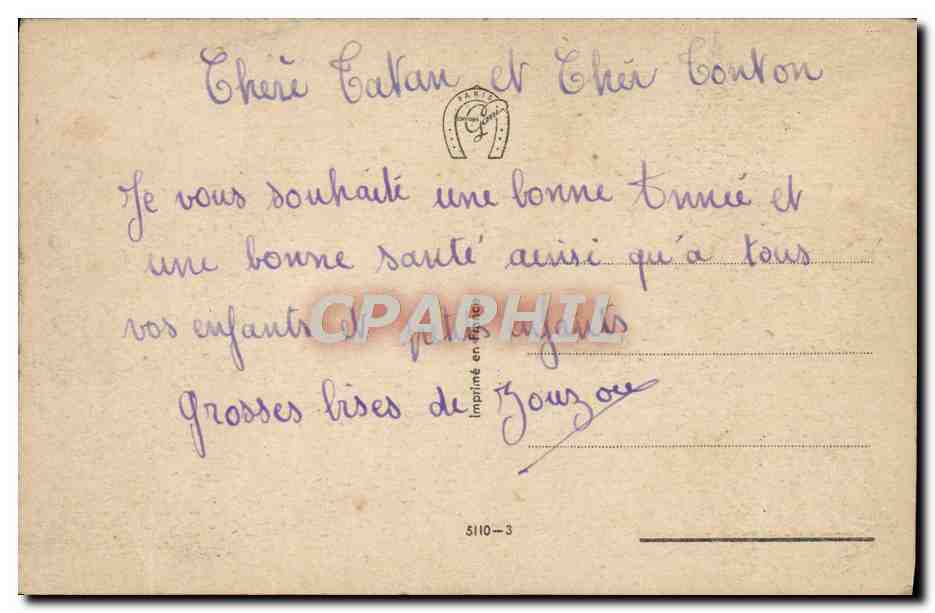 Chère Tatan et Cher Tonton
PARIS
Je vous souhaite une bonne Année et
une bonne santé ainsi qu'à tous
vos enfants et petits enfants
CPAPHIL
Imprimé en France
Grosses bises de Zouzou
5110-3